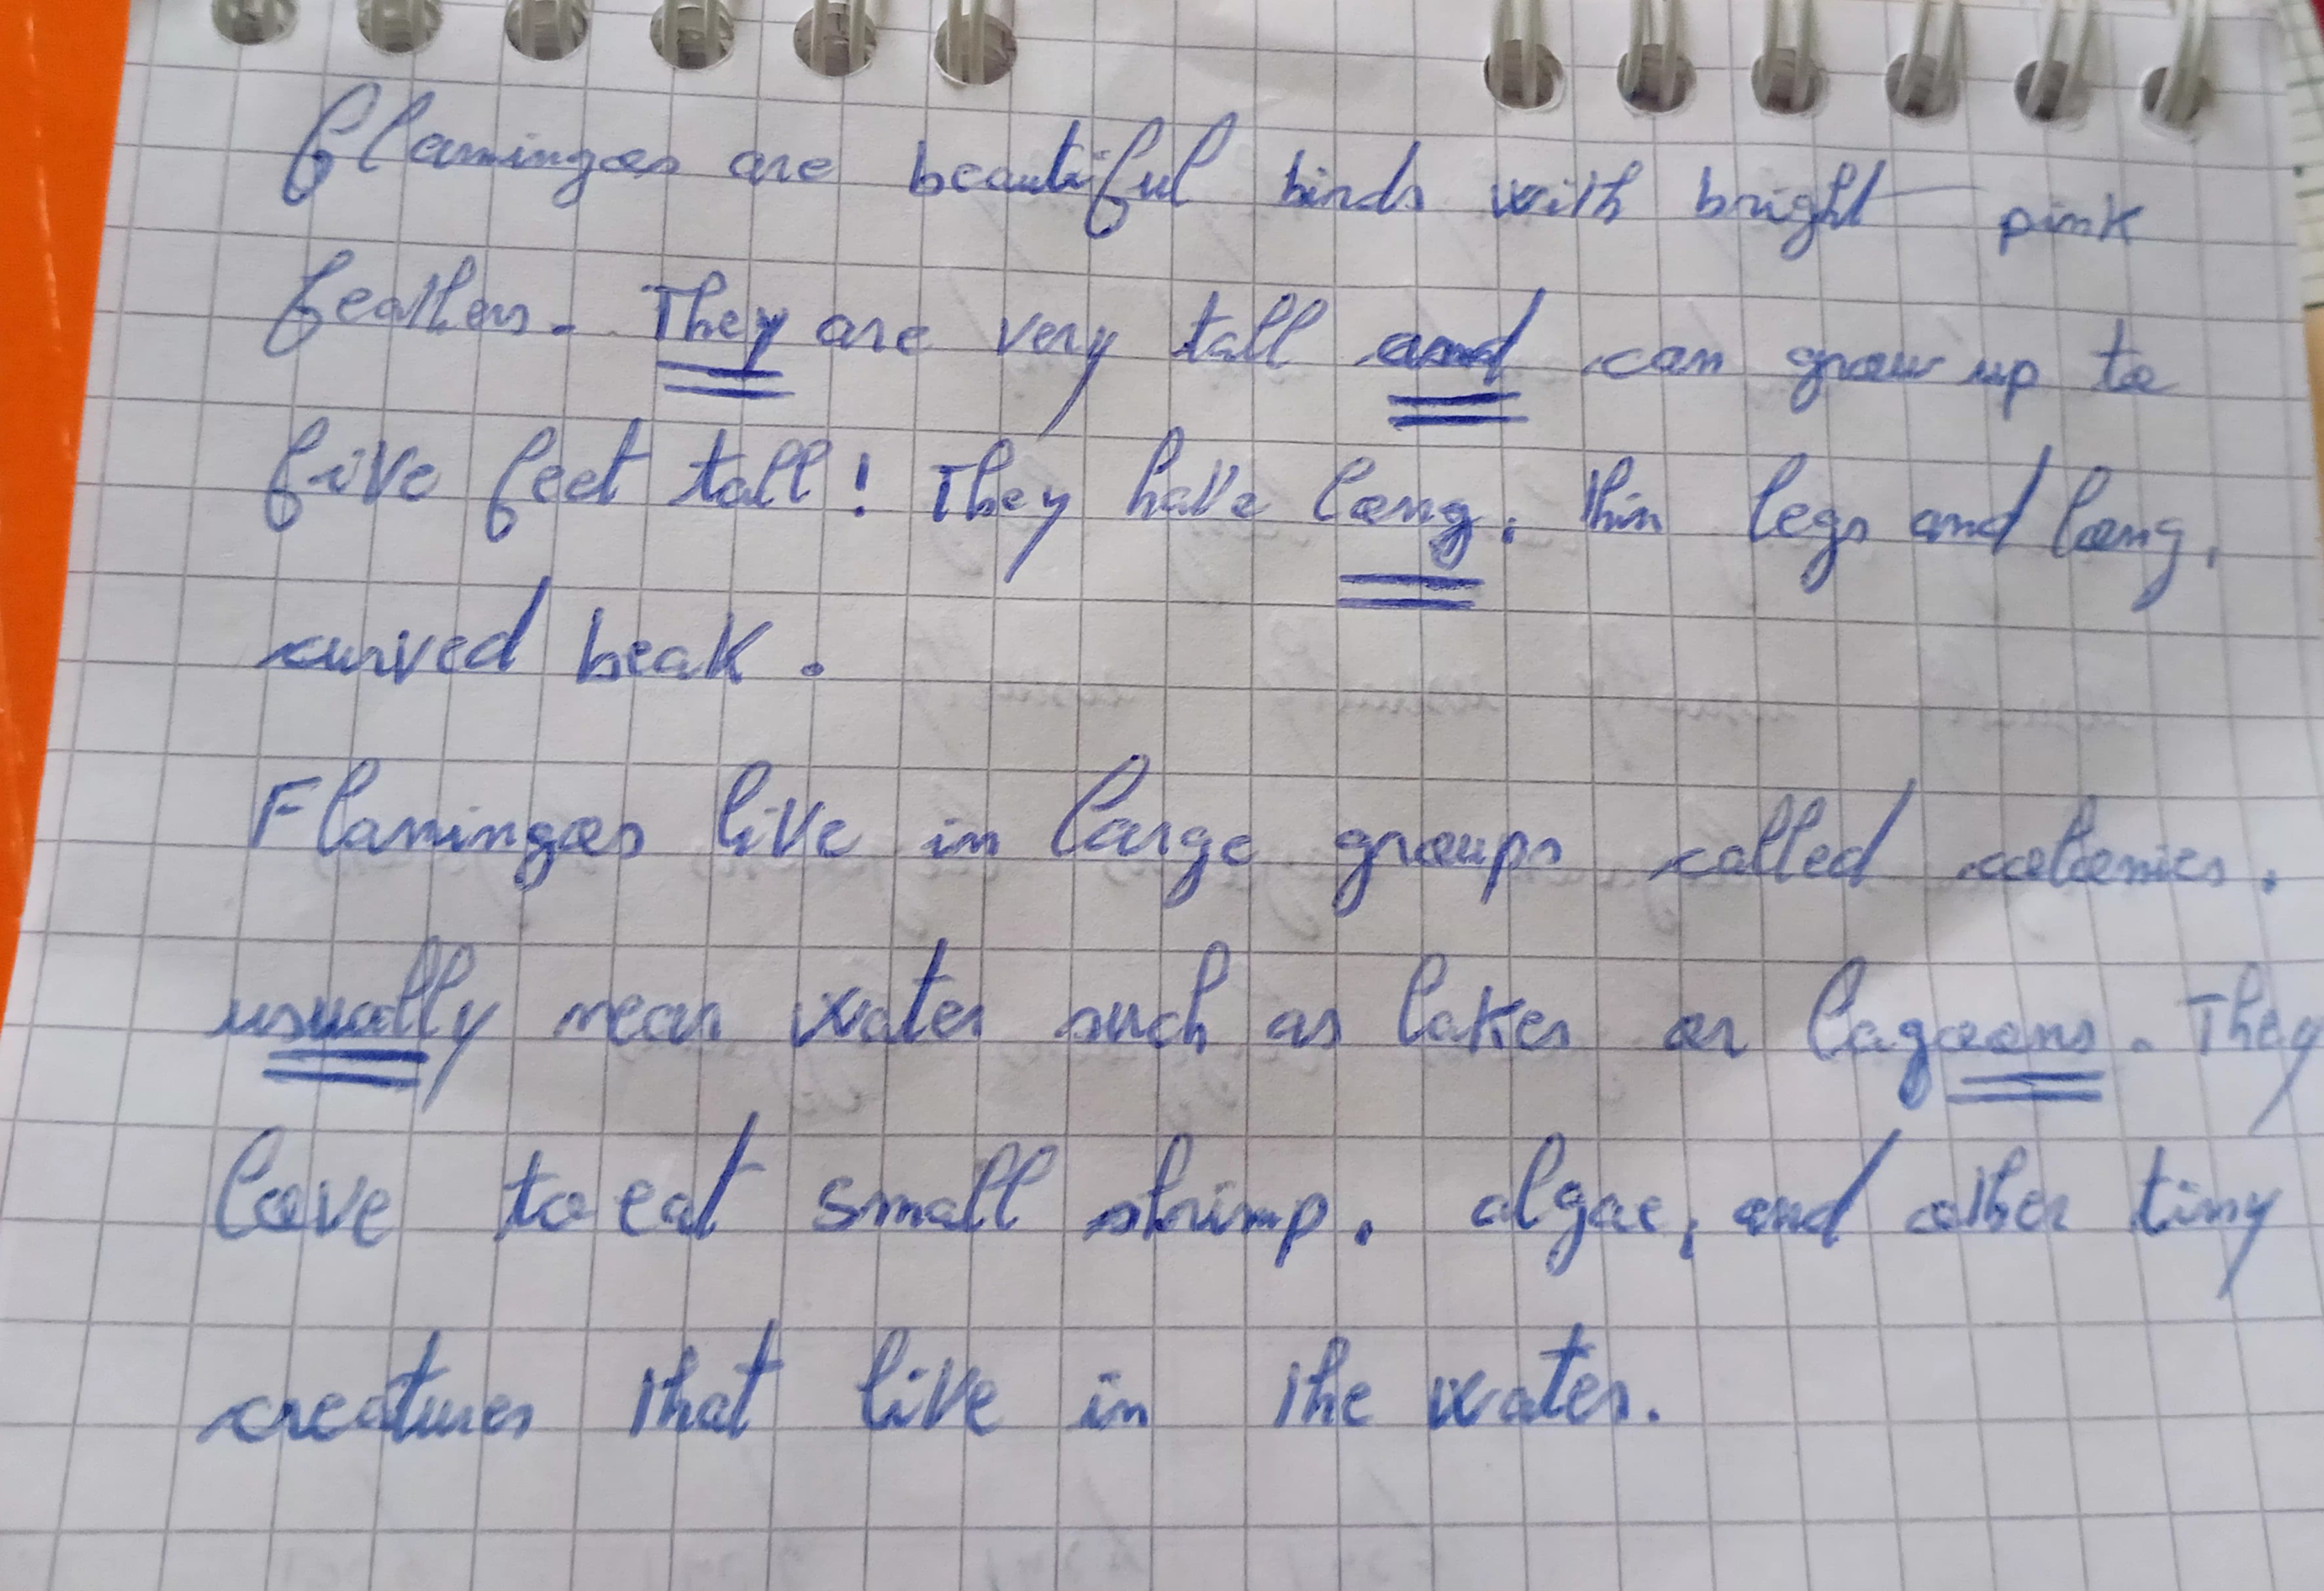 flamingoes are beautiful birds with bright pink
feathers. They are very tall and can grow up to
five feet tall! They have long, thin legs and long,
curved beak.
Flamingoes live in large groups called colonies.
usually near water such as lakes or lagoons. They
love to eat small shrimp. algae, and other tiny
creatures that live in the water.